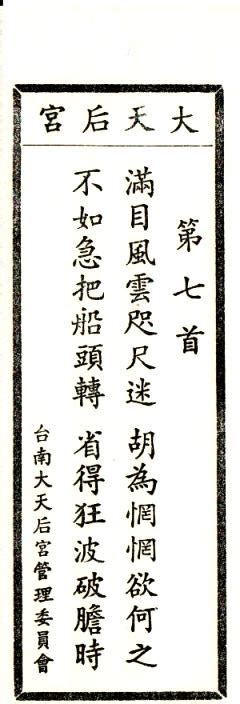 大天后宮
第七首
滿目風雲咫尺迷　胡為惘惘欲何之
不如急把船頭轉　省得狂波破膽時
台南大天后宮管理委員會